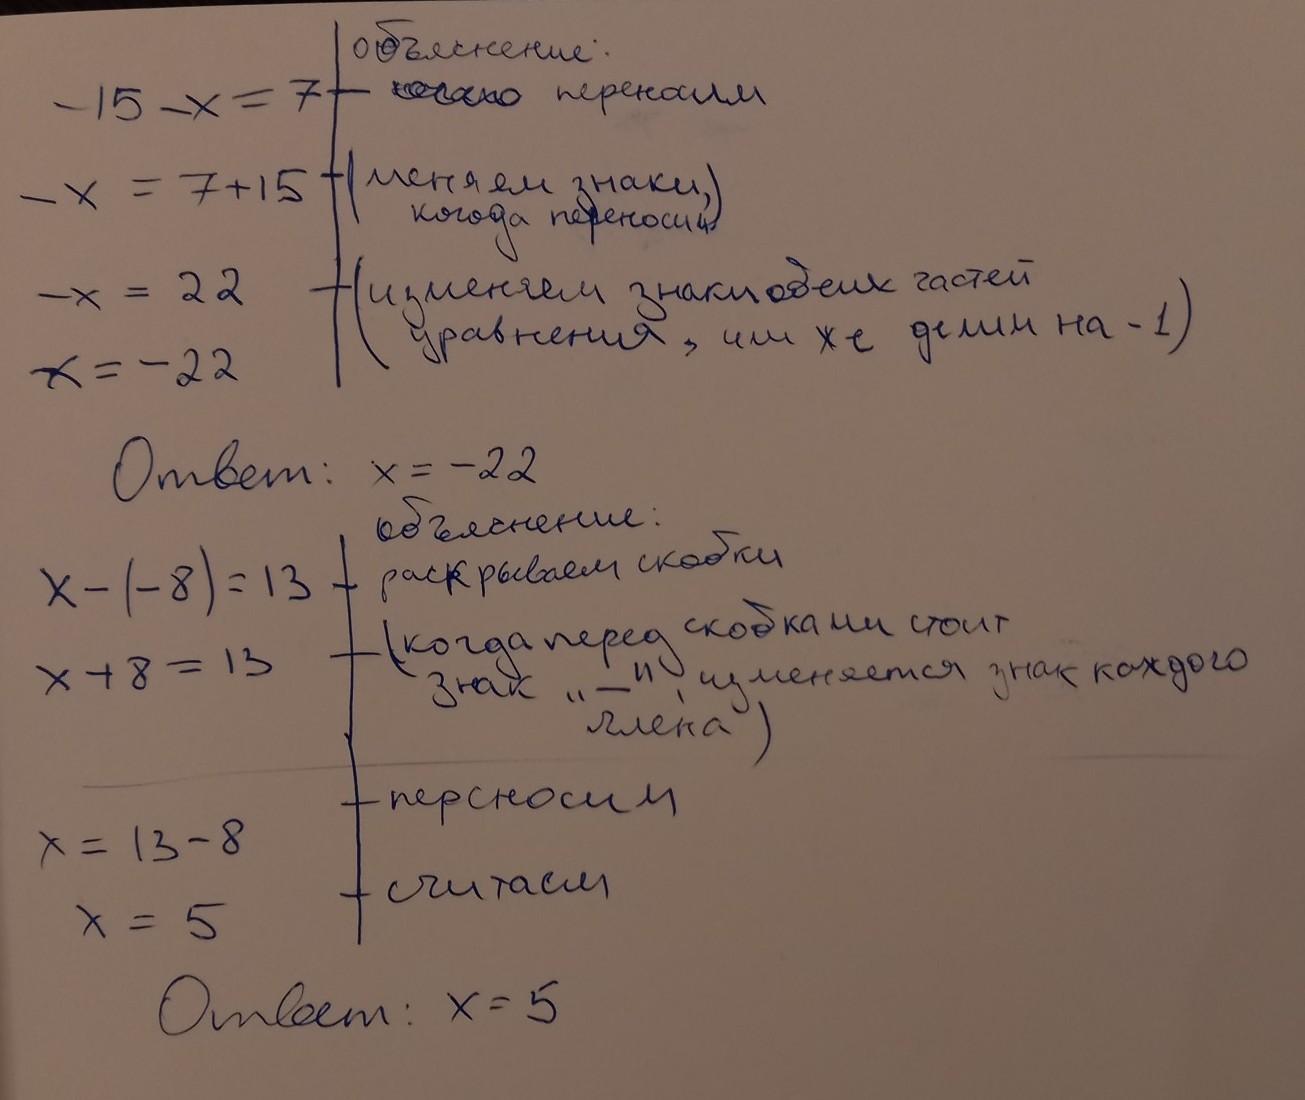 объяснение:
-15 -x = 7 переносим
-x = 7+15 (меняем знаки,
когода переносим)
-x = 22 (изменяем знаки обеих частей
уравнения, или же делим на -1)
x = -22
Ответ: x = -22
объяснение:
x-(-8)=13 раскрываем скобки
x+8=13 (когда перед скобками стоит
знак „-", изменяется знак каждого
члена)
переносим
x = 13-8
считаем
x = 5
Ответ: x = 5